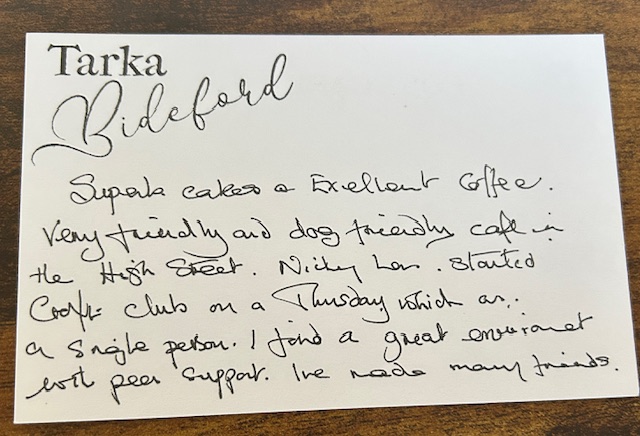 Tarka
Bideford
Superb cakes & Exellent Coffee.
Very friendly and dog friendly cafe in
the High Street. Nicky has. started
Craft club on a Thursday which as.
a single person. I find a great enviromet
with peer support. Ive made many friends.